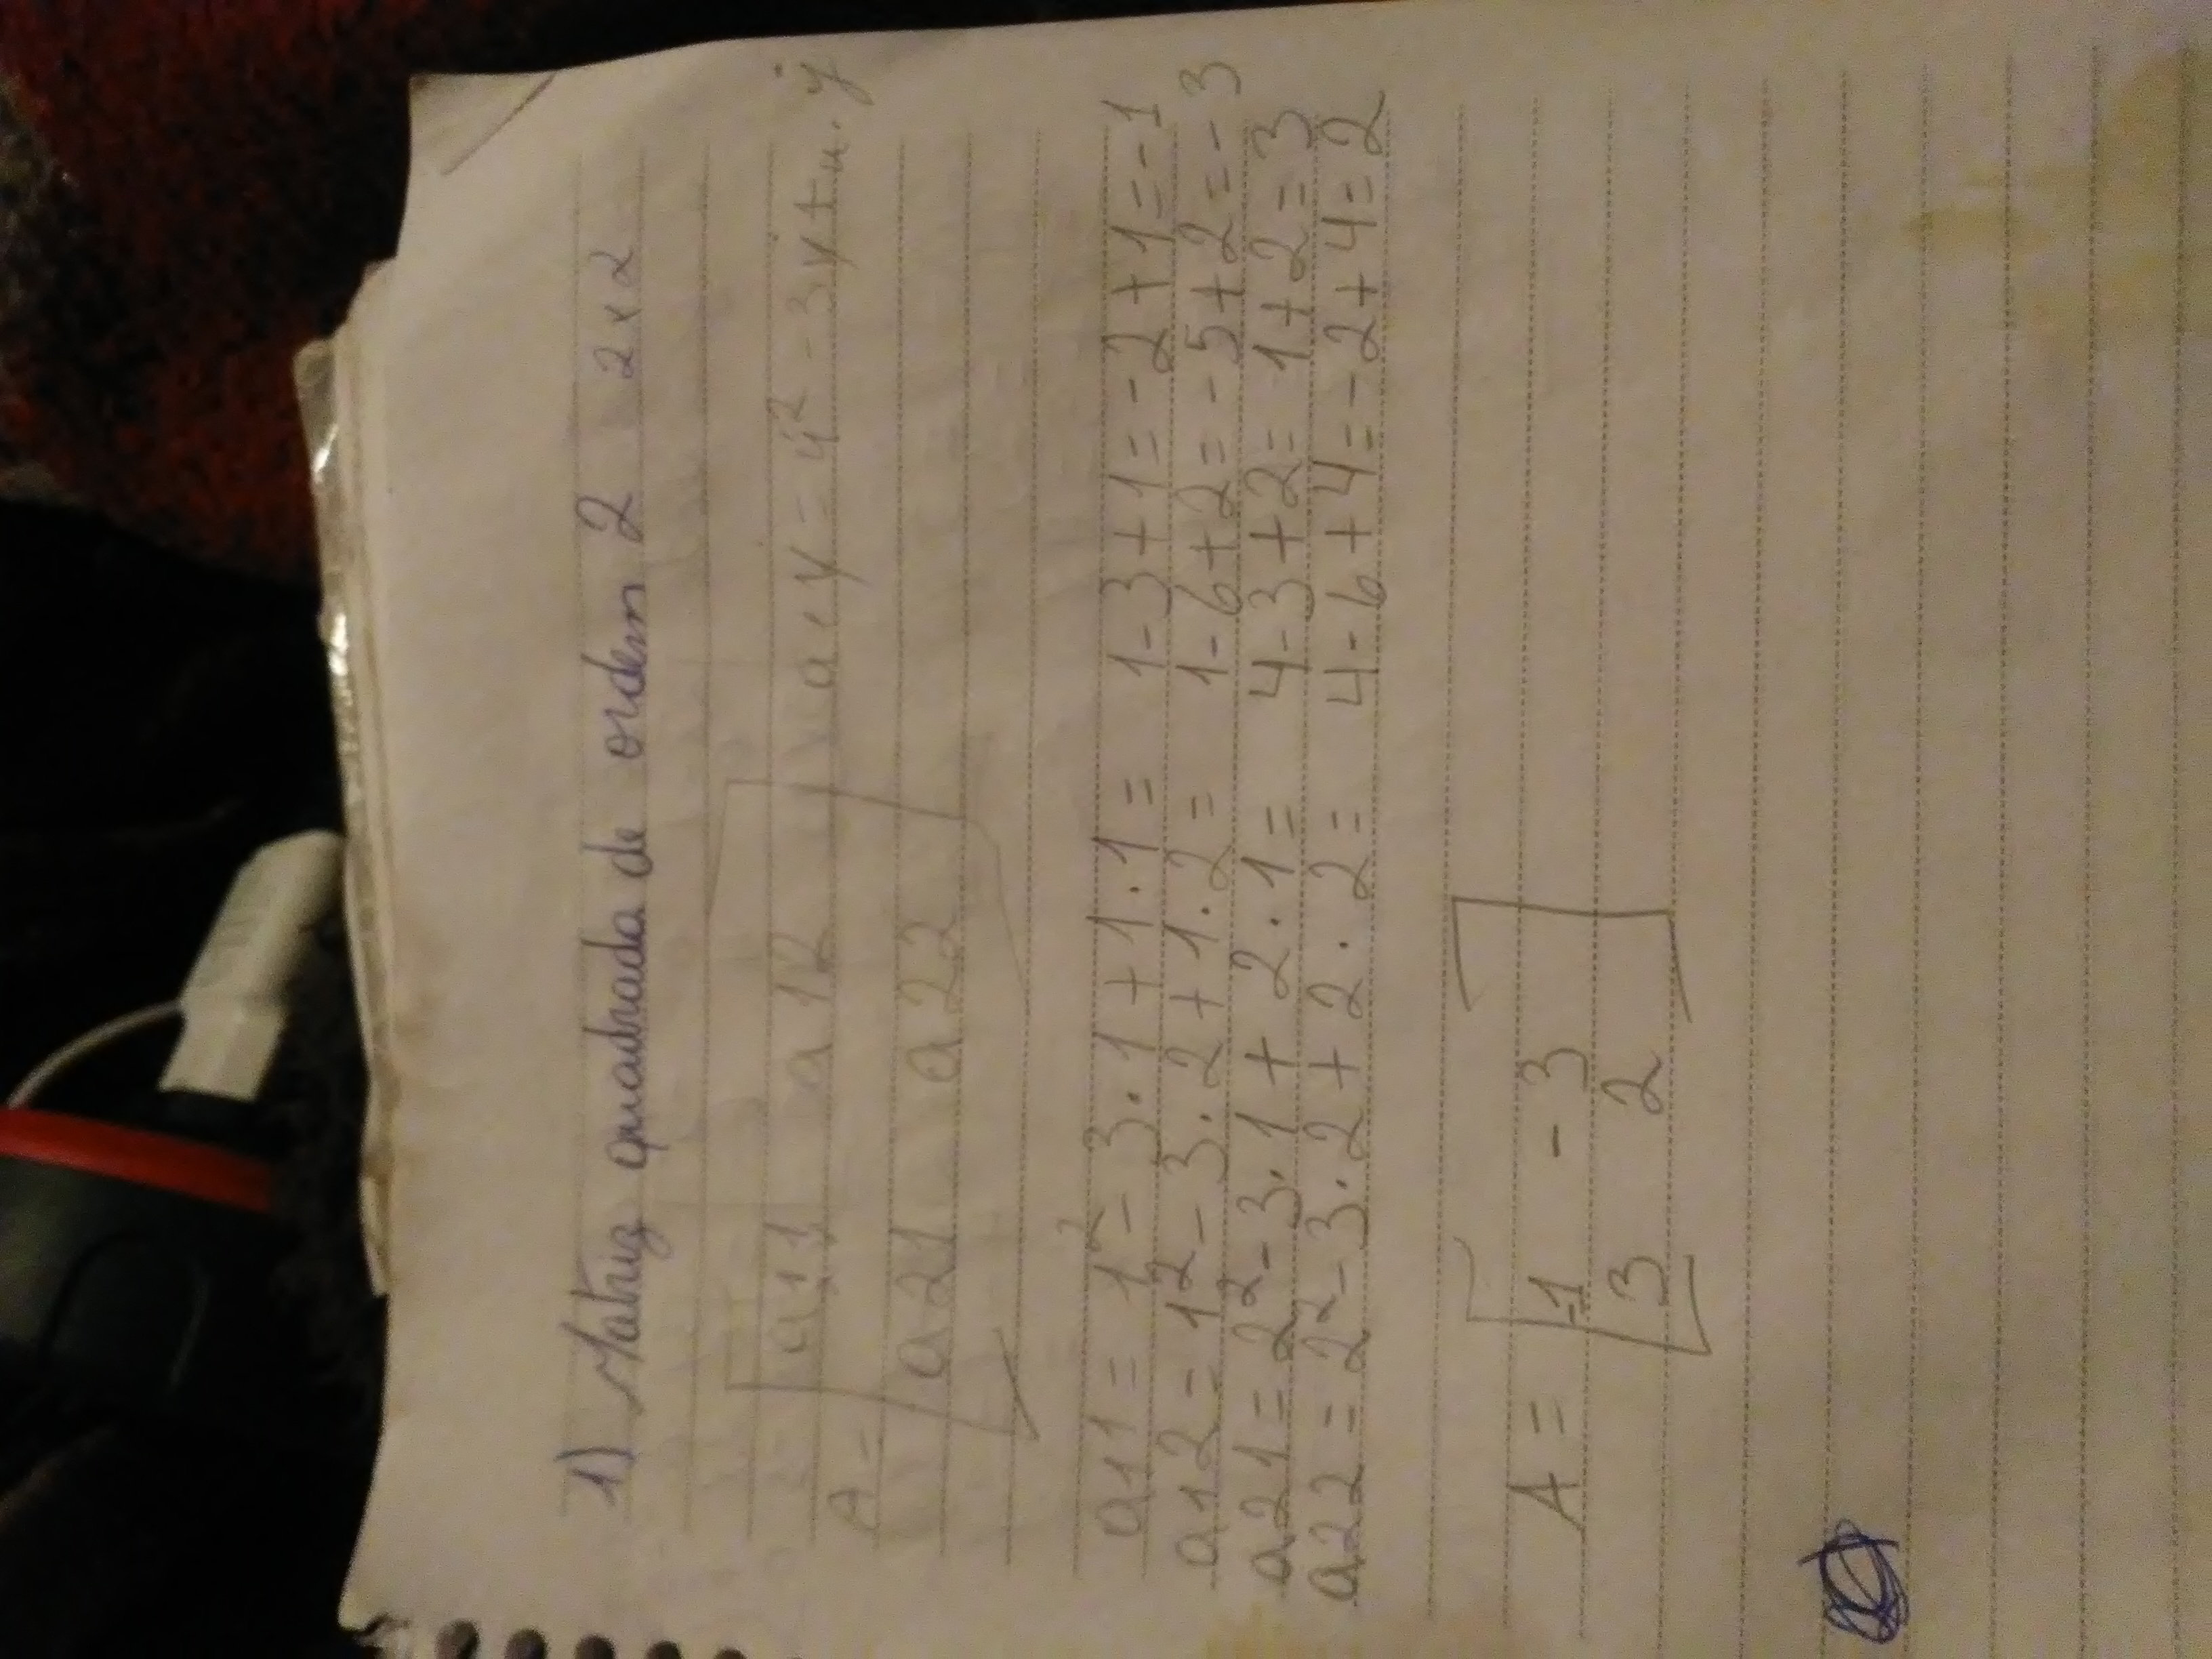 1) Matriz quadrada de ordem 2 2x2
a11 a12 aij = i² - 3j + i . j
A =
a21 a22
a11 = 1² - 3.1 + 1.1 = 1-3+1=-2+1=-1
a12 = 1² - 3.2 + 1.2 = 1-6+2=-5+2=-3
a21 = 2² - 3.1 + 2.1 = 4-3+2= 1+2=3
a22 = 2² - 3.2 + 2.2 = 4-6+4=-2+4=2
A = -1 -3
3 2